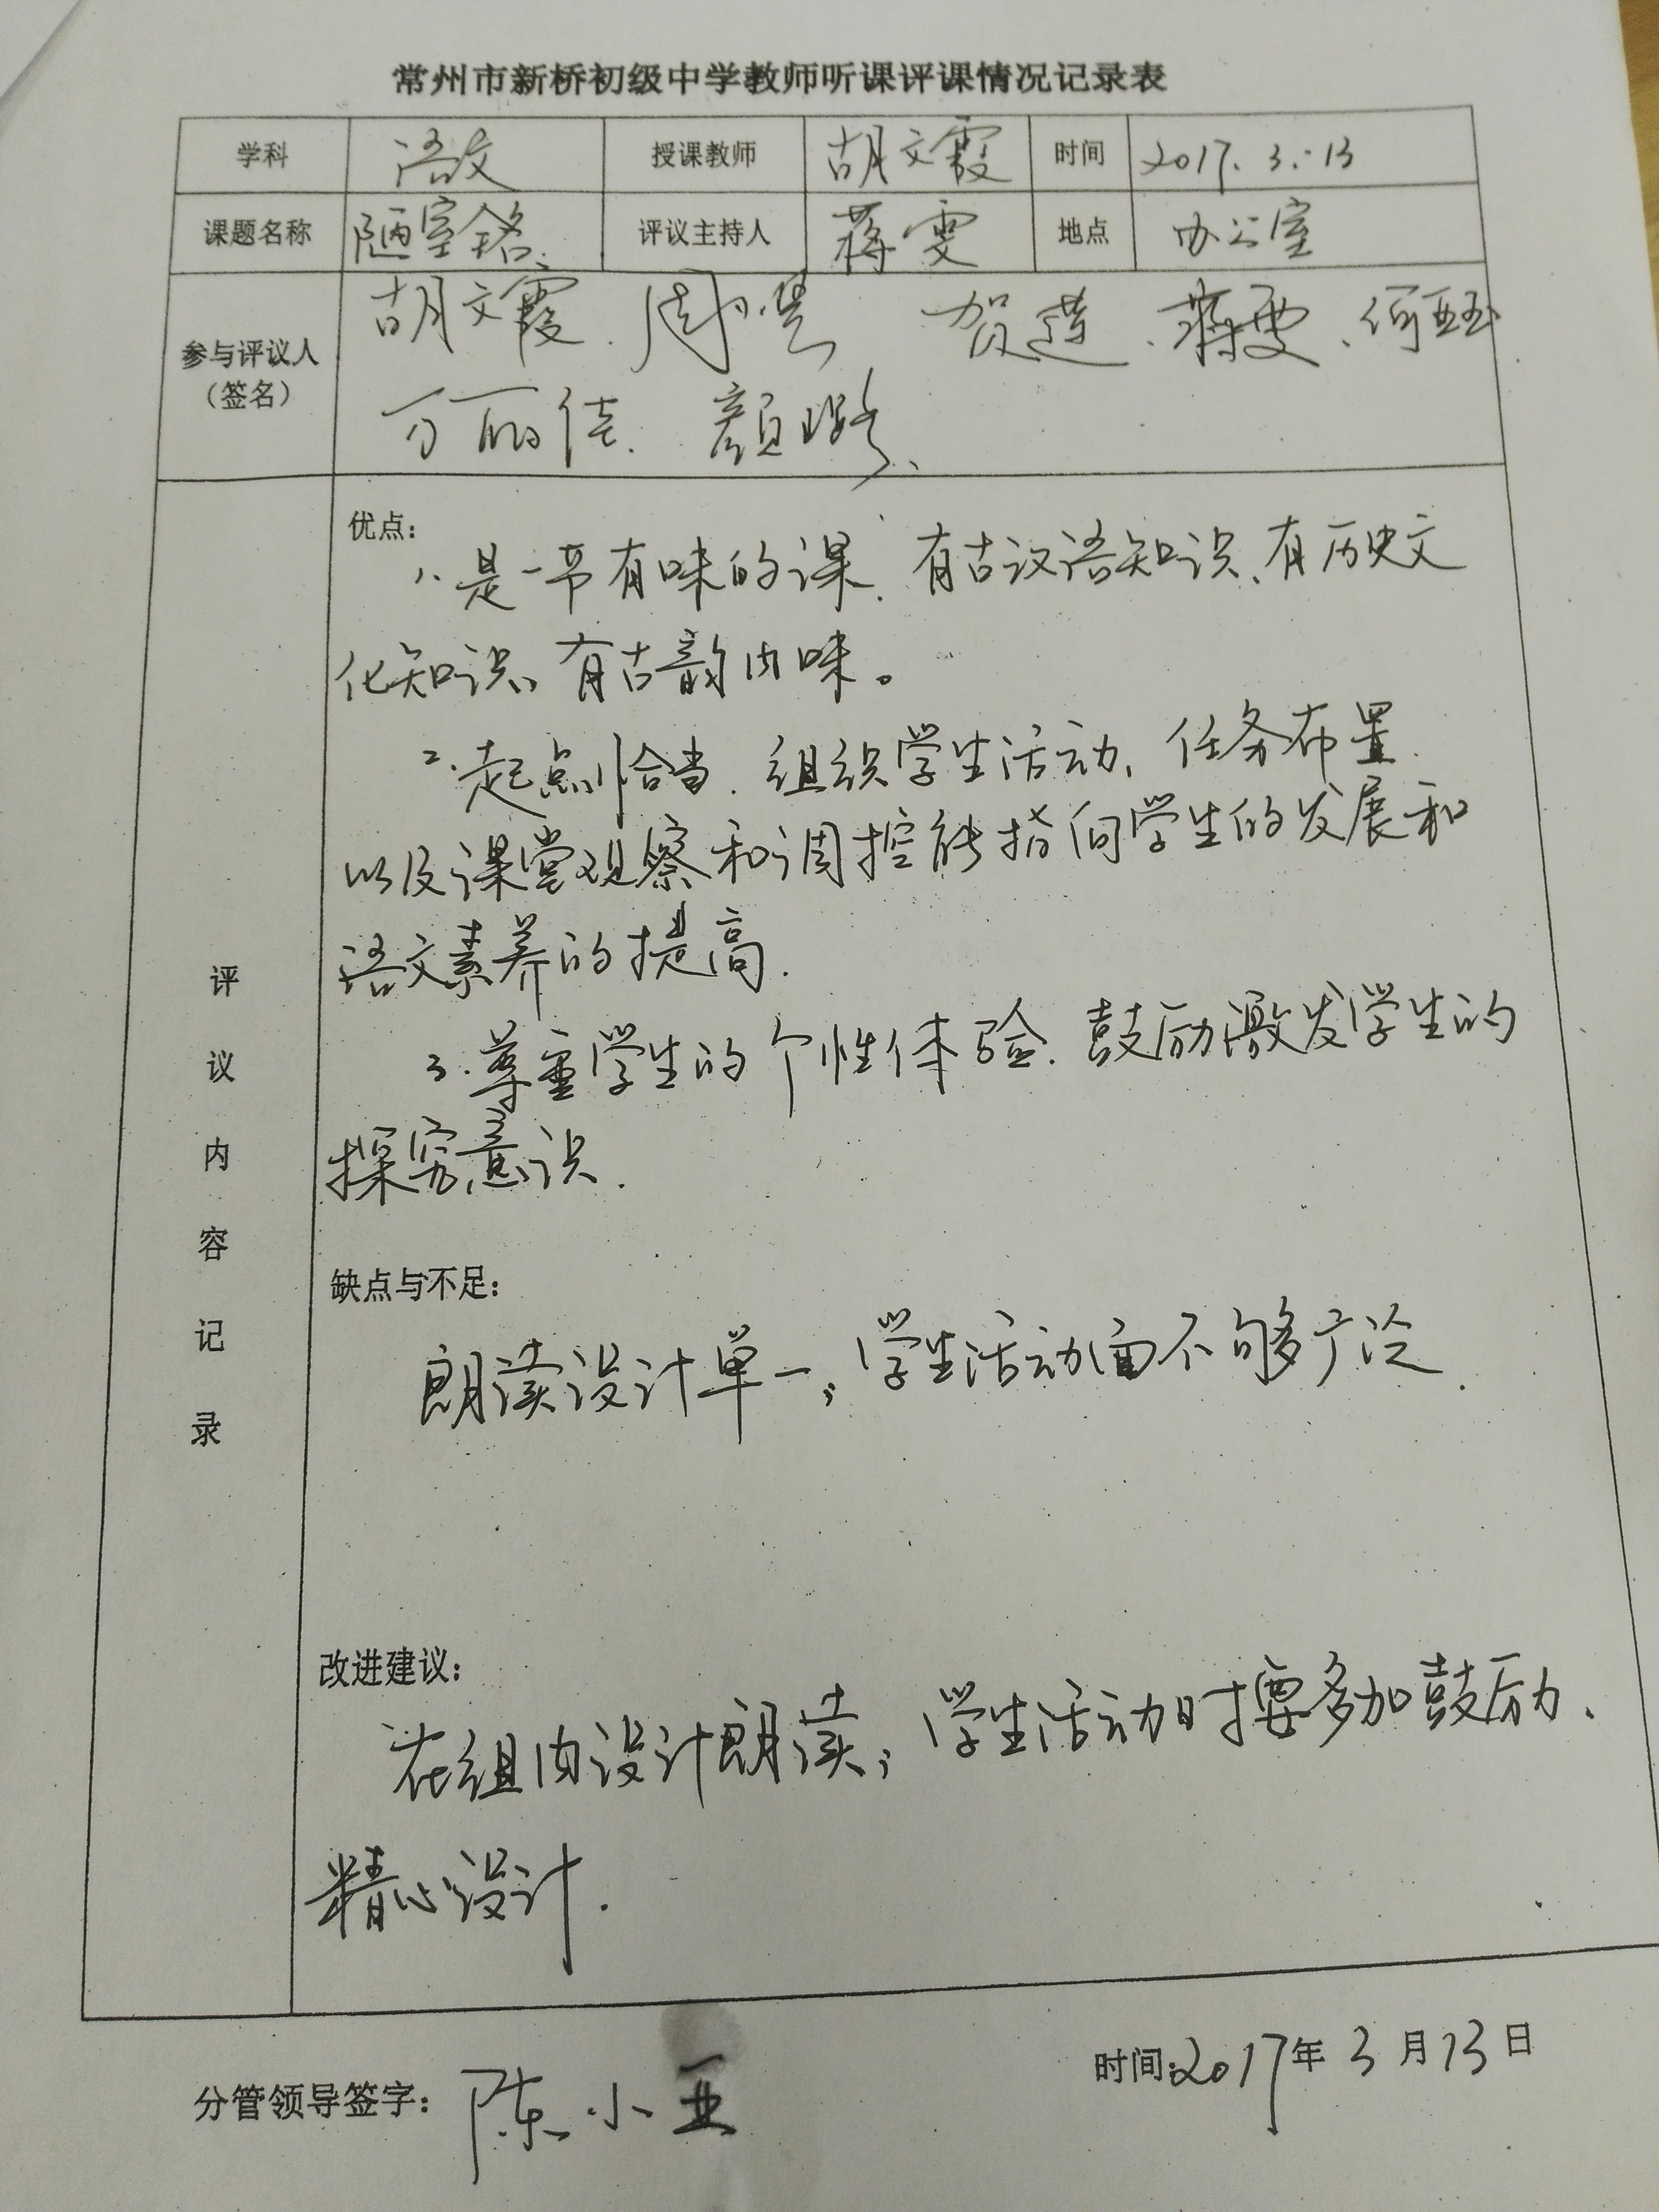 常州市新桥初级中学教师听课评课情况记录表
学科 语文 授课教师 胡文霞 时间 2017.3.13
课题名称 陋室铭. 评议主持人 蒋雯 地点 办公室
参与评议人
(签名)
胡文霞. 贺莲、蒋雯、何亚玉
万丽佳.
评议内容记录
优点:
1. 是一节有味的课. 有古汉语知识、有历史文
化知识、有古韵内味。
2. 起点恰当. 组织学生活动、任务布置.
以及课堂观察和调控能指向学生的发展和
语文素养的提高.
3. 尊重学生的个性体验. 鼓励激发学生的
探究意识.
缺点与不足:
朗读设计单一;学生活动面不够广泛.
改进建议:
在组内设计朗读;学生活动时要多加鼓励、
精心设计.
分管领导签字: 陈小亚
时间:2017年3月13日